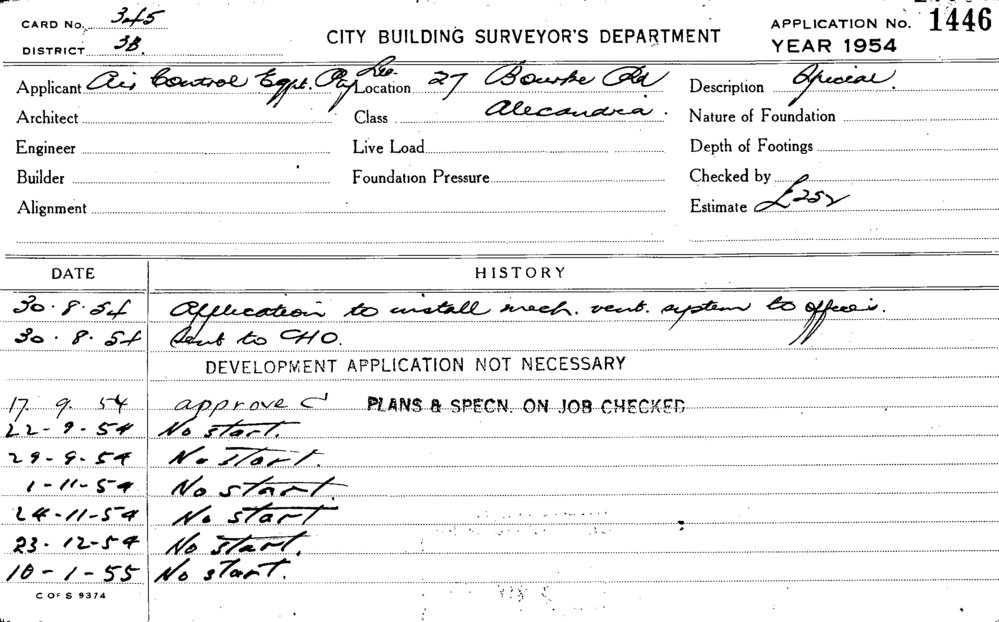 CARD No. 345
DISTRICT 3B.
CITY BUILDING SURVEYOR'S DEPARTMENT
APPLICATION No. 1446
YEAR 1954
Applicant Air Control Eqpt. Pty Ltd. Location 27 Bourke Rd Description Special.
Architect Class Alexandria. Nature of Foundation
Engineer Live Load Depth of Footings
Builder Foundation Pressure Checked by
Alignment Estimate £252
DATE HISTORY
30.8.54 Application to install mech. vent. system to offices.
30.8.54 Sent to CHO.
DEVELOPMENT APPLICATION NOT NECESSARY
17. 9. 54 approved PLANS & SPECN. ON JOB CHECKED
22-9-54 No start.
29-9-54 No start.
1-11-54 No start.
24-11-54 No start
23.12-54 No start.
10-1-55 No start.
C OF S 9374